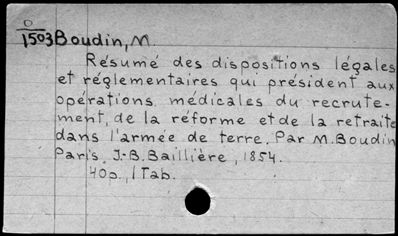 O
1503 Boudin, M.
Résumé des dispositions légales
et réglementaires qui président aux
opérations médicales du recrute-
ment, de la réforme et de la retraite
dans l'armée de terre. Par M. Boudin
Paris, J.-B. Baillière, 1854.
40p., 1 Tab.